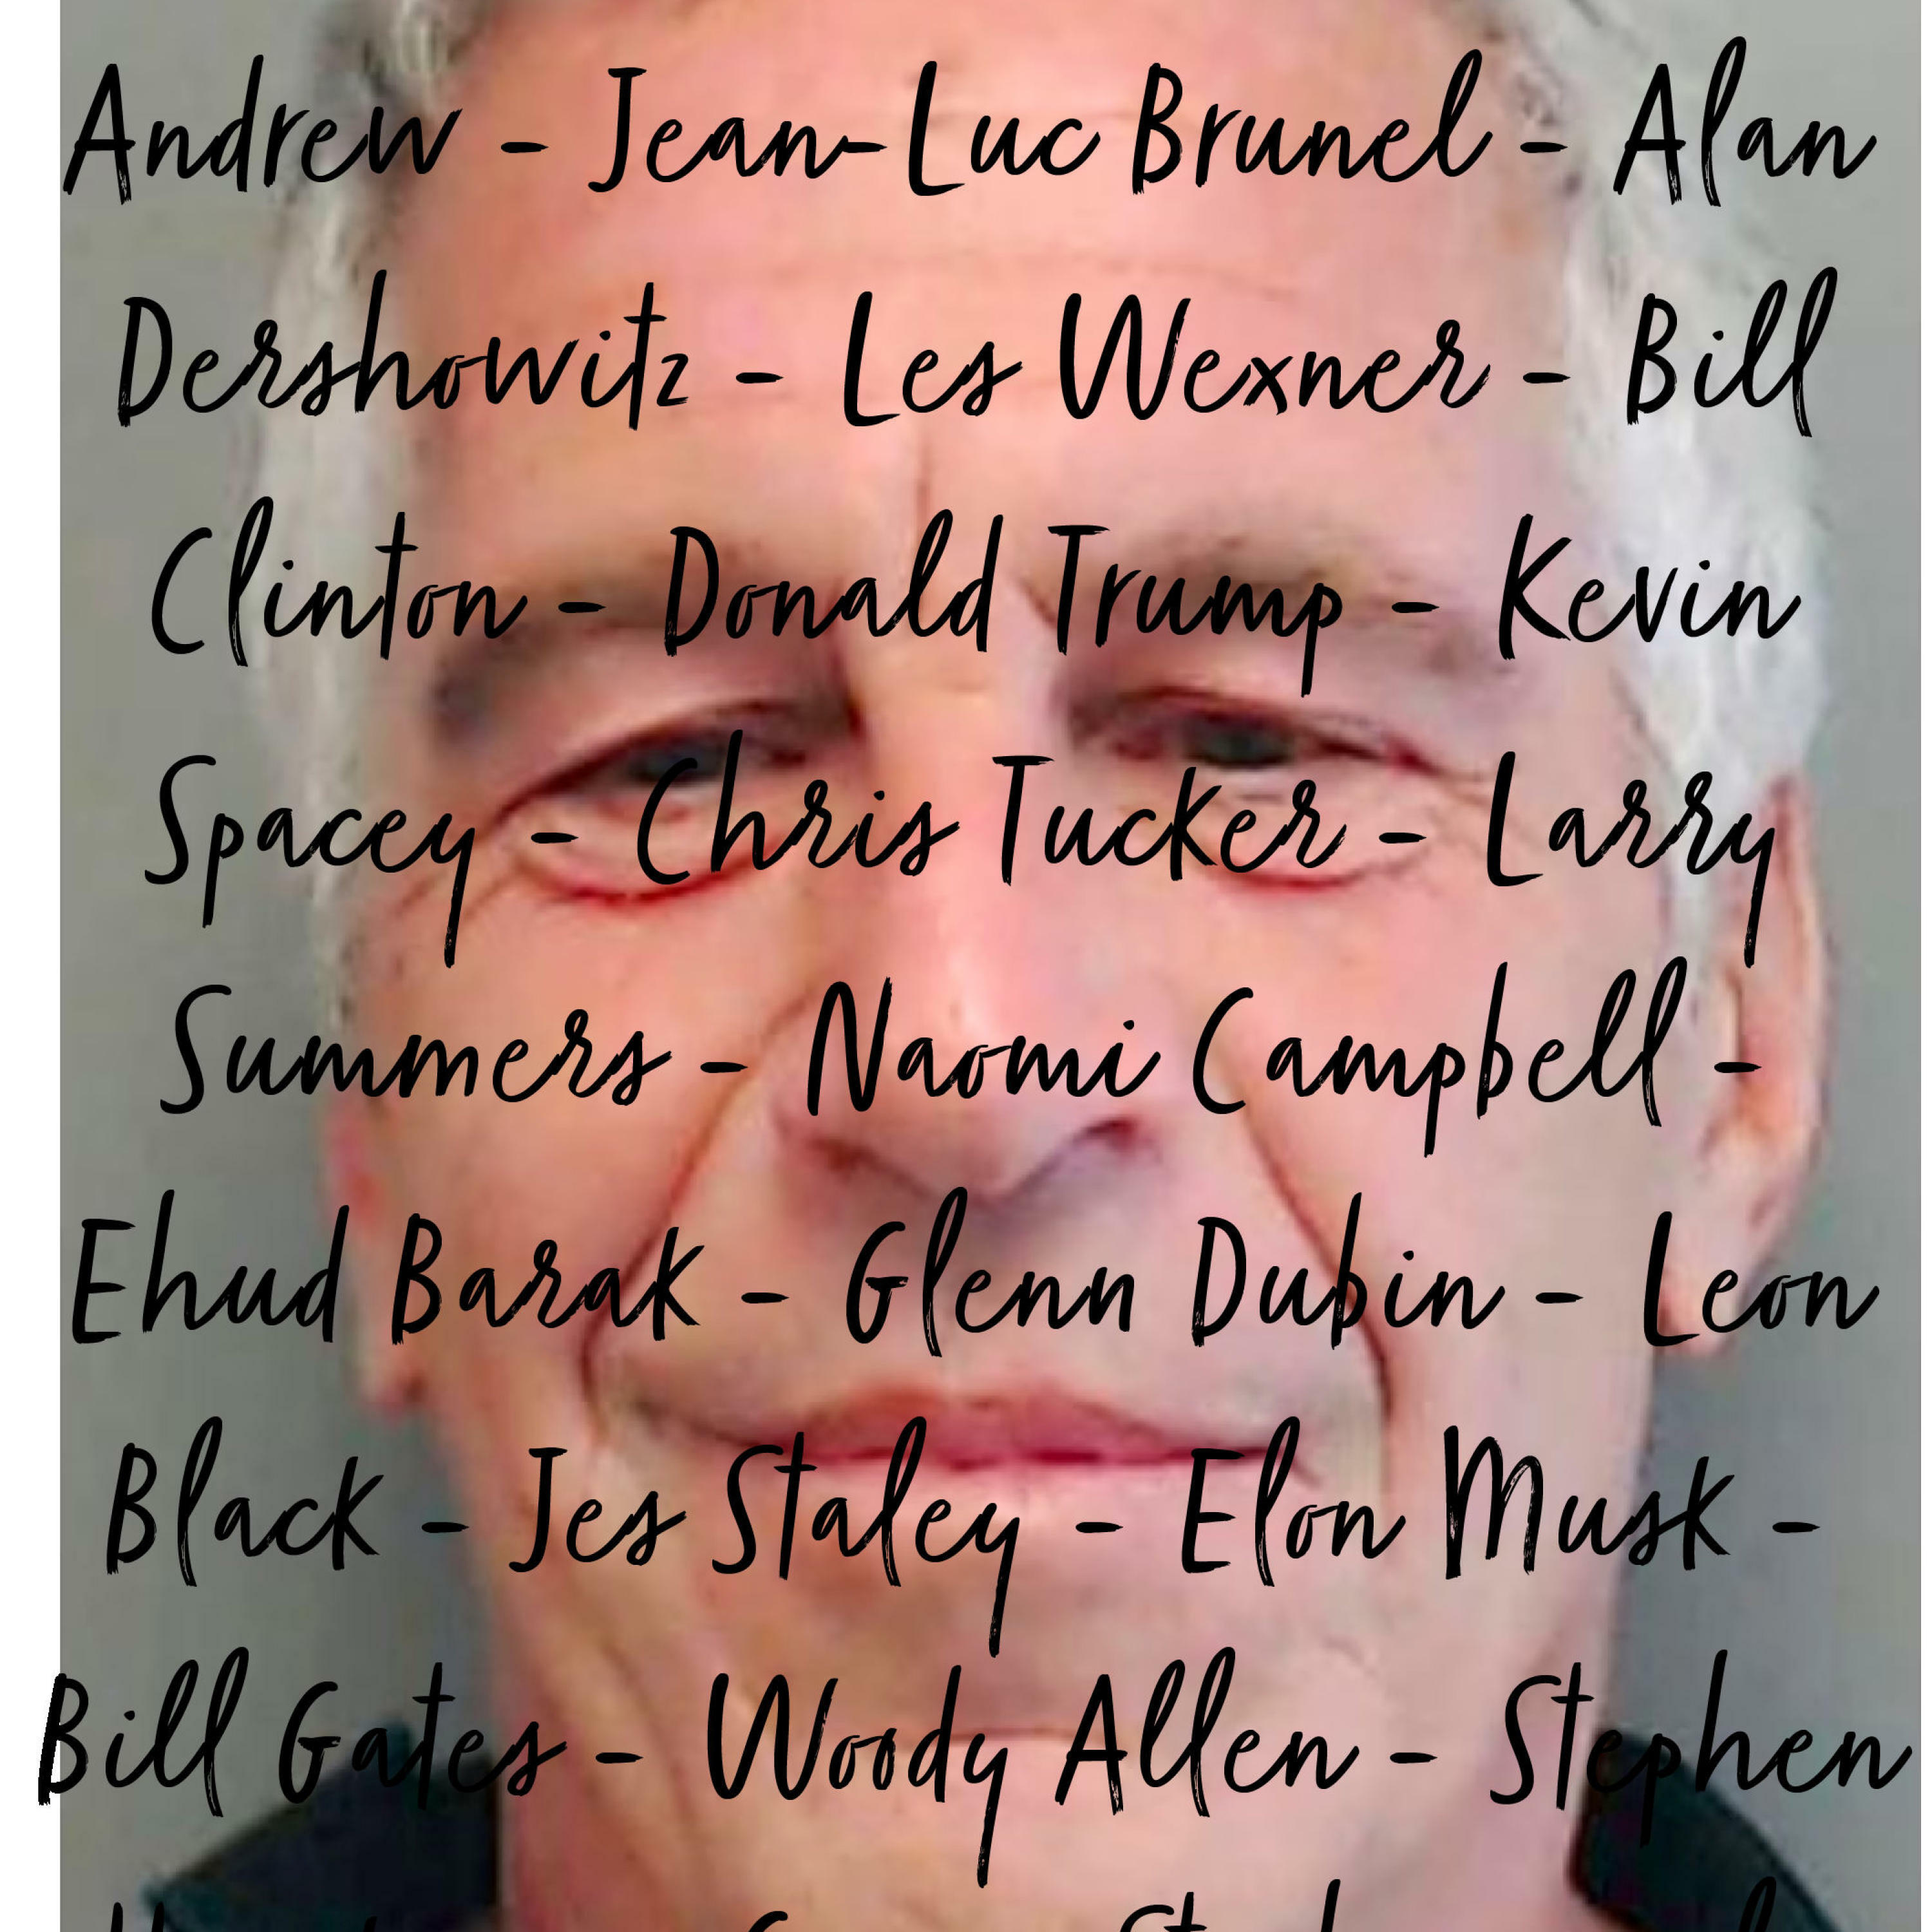 Andrew - Jean-Luc Brunel - Alan
Dershowitz - Les Wexner - Bill
Clinton - Donald Trump - Kevin
Spacey - Chris Tucker - Larry
Summers - Naomi Campbell -
Ehud Barak - Glenn Dubin - Leon
Black - Jes Staley - Elon Musk -
Bill Gates - Woody Allen - Stephen